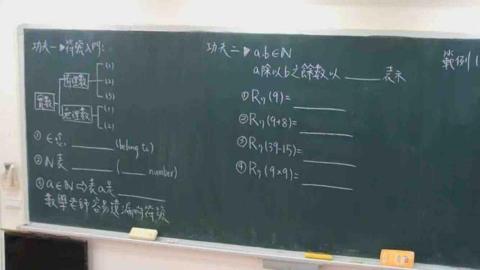 功夫一▶符號入門:
實數
有理數
(1)
(2)
(3)
無理數
(1)
(2)
① ∈表 ______ (belong to)
② N表 ______ (____ number)
③ a∈N ⇒表a是 ______
數學老師容易遺漏的符號
功夫二▶ a,b∈N
a除以b之餘數以 ______ 表示
① R₇(9)= ______
② R₇(9+8)= ______
③ R₇(39-15)= ______
④ R₇(9×9)= ______
範例1